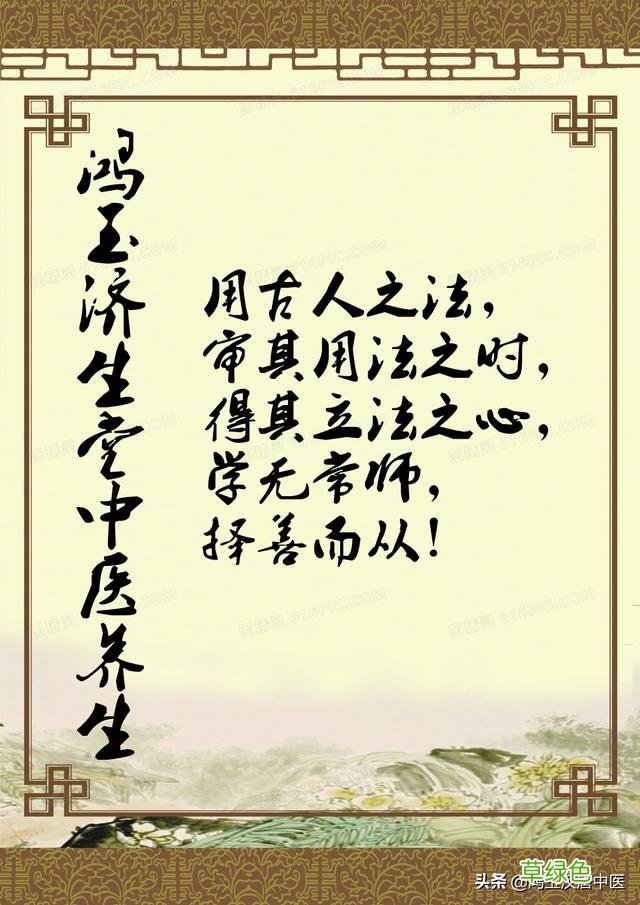 鸿玉济生堂中医养生
用古人之法，
审其用法之时，
得其立法之心，
学无常师，
择善而从！
图精灵 616PIC.COM
草绿色
头条 @鸿玉汉唐中医